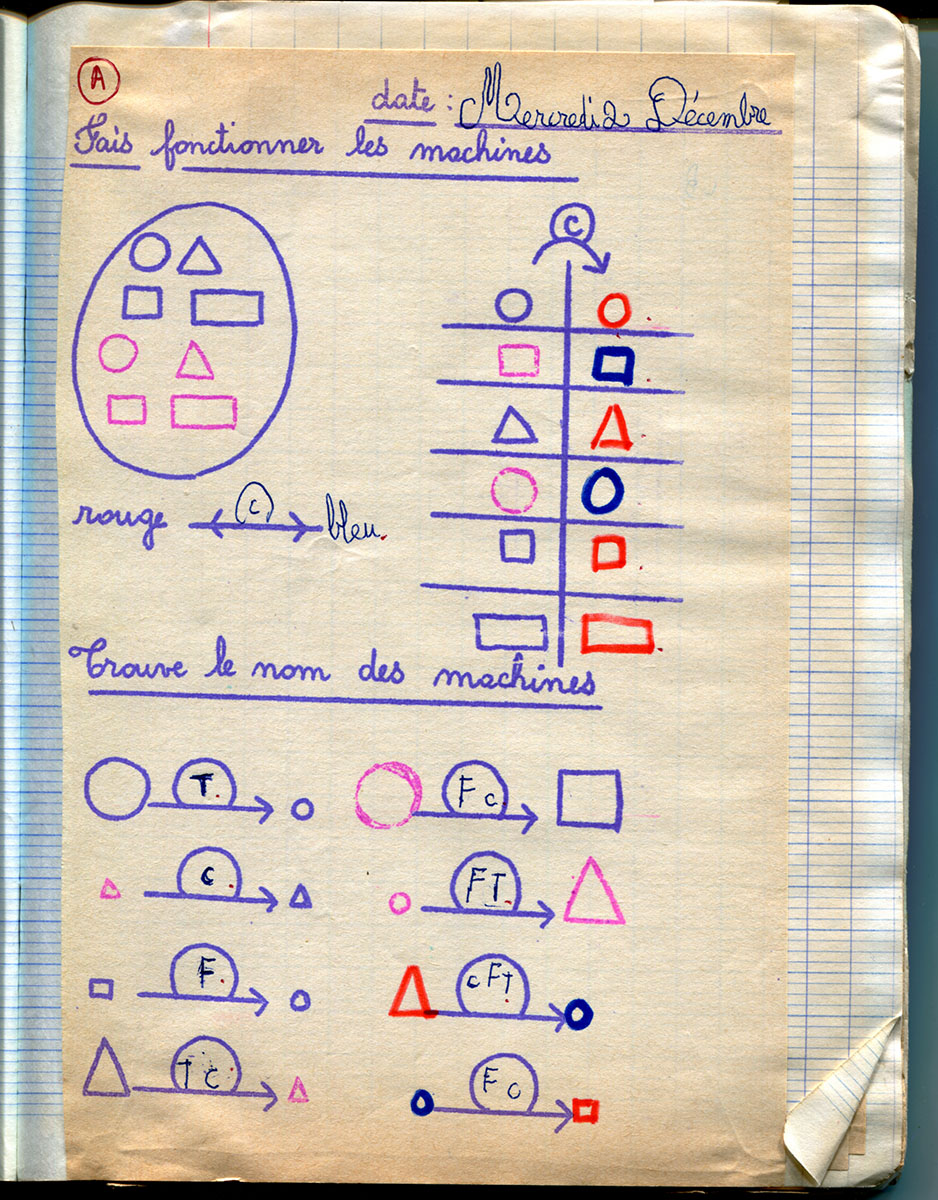 A
date : Mercredi 2 Décembre
Fais fonctionner les machines
C
rouge C bleu.
Trouve le nom des machines
T. Fc
C. FT.
F. cFT
Tc Fc